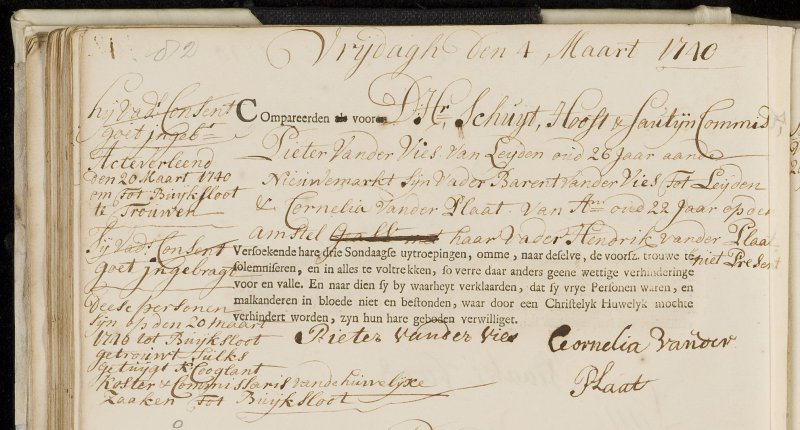 Vrijdagh den 4 Maart 1740
hij Vad.r Consent
goet ingeb.t
Acte verleend
den 20 Maart 1740
om tot Buijksloot
te Trouwen
Sij Vad.r Consent
goet ingebragt
deese personen
sijn op den 20 maart
1740 tot Buijksloot
getrouwt sulks
getuijgt K: Cooglant
koster & Commissaris van de huwelijxe
zaaken tot Buijksloot
Compareerden als vooren D' Hr. Schuyt, Hooft & Sautijn Commiss
Pieter Van der Vies Van Leyden oud 26 Jaar aan de
Nieuwemarkt sijn Vader Barent van der Vies tot Leijden
& Cornelia Van der Plaat. Van Am oud 22 Jaar op den
Amstel haar Vader Hendrik van der Plaat
niet Present
Versoekende hare drie Sondaagse uytroepingen, omme, naar deselve, de voorsz. trouwe te
solemniseren, en in alles te voltrekken, so verre daar anders geene wettige verhinderinge
voor en valle. En naar dien sy by waarheyt verklaarden, dat sy vrye Personen waren, en
malkanderen in bloede niet en bestonden, waar door een Christelyk Huwelyk mochte
verhindert worden, zyn hun hare geboden verwilliget.
Pieter van der Vies
Cornelia vander
Plaat